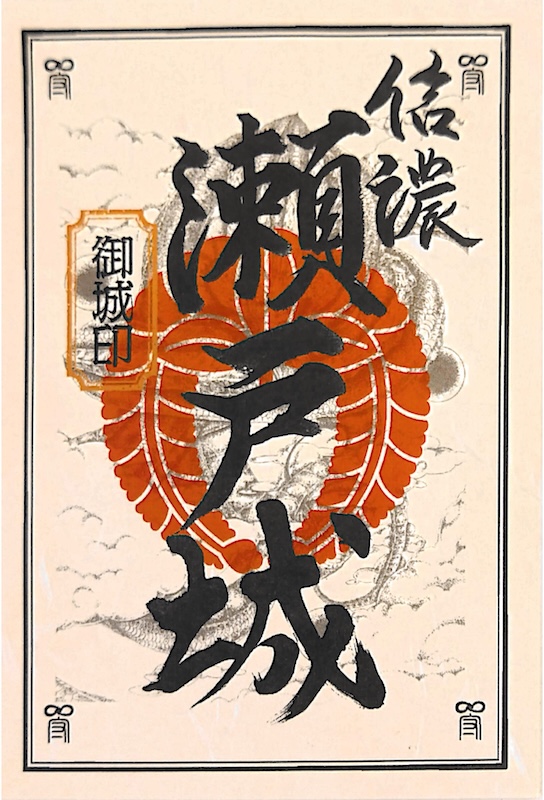 信濃
瀬戸城
御城印